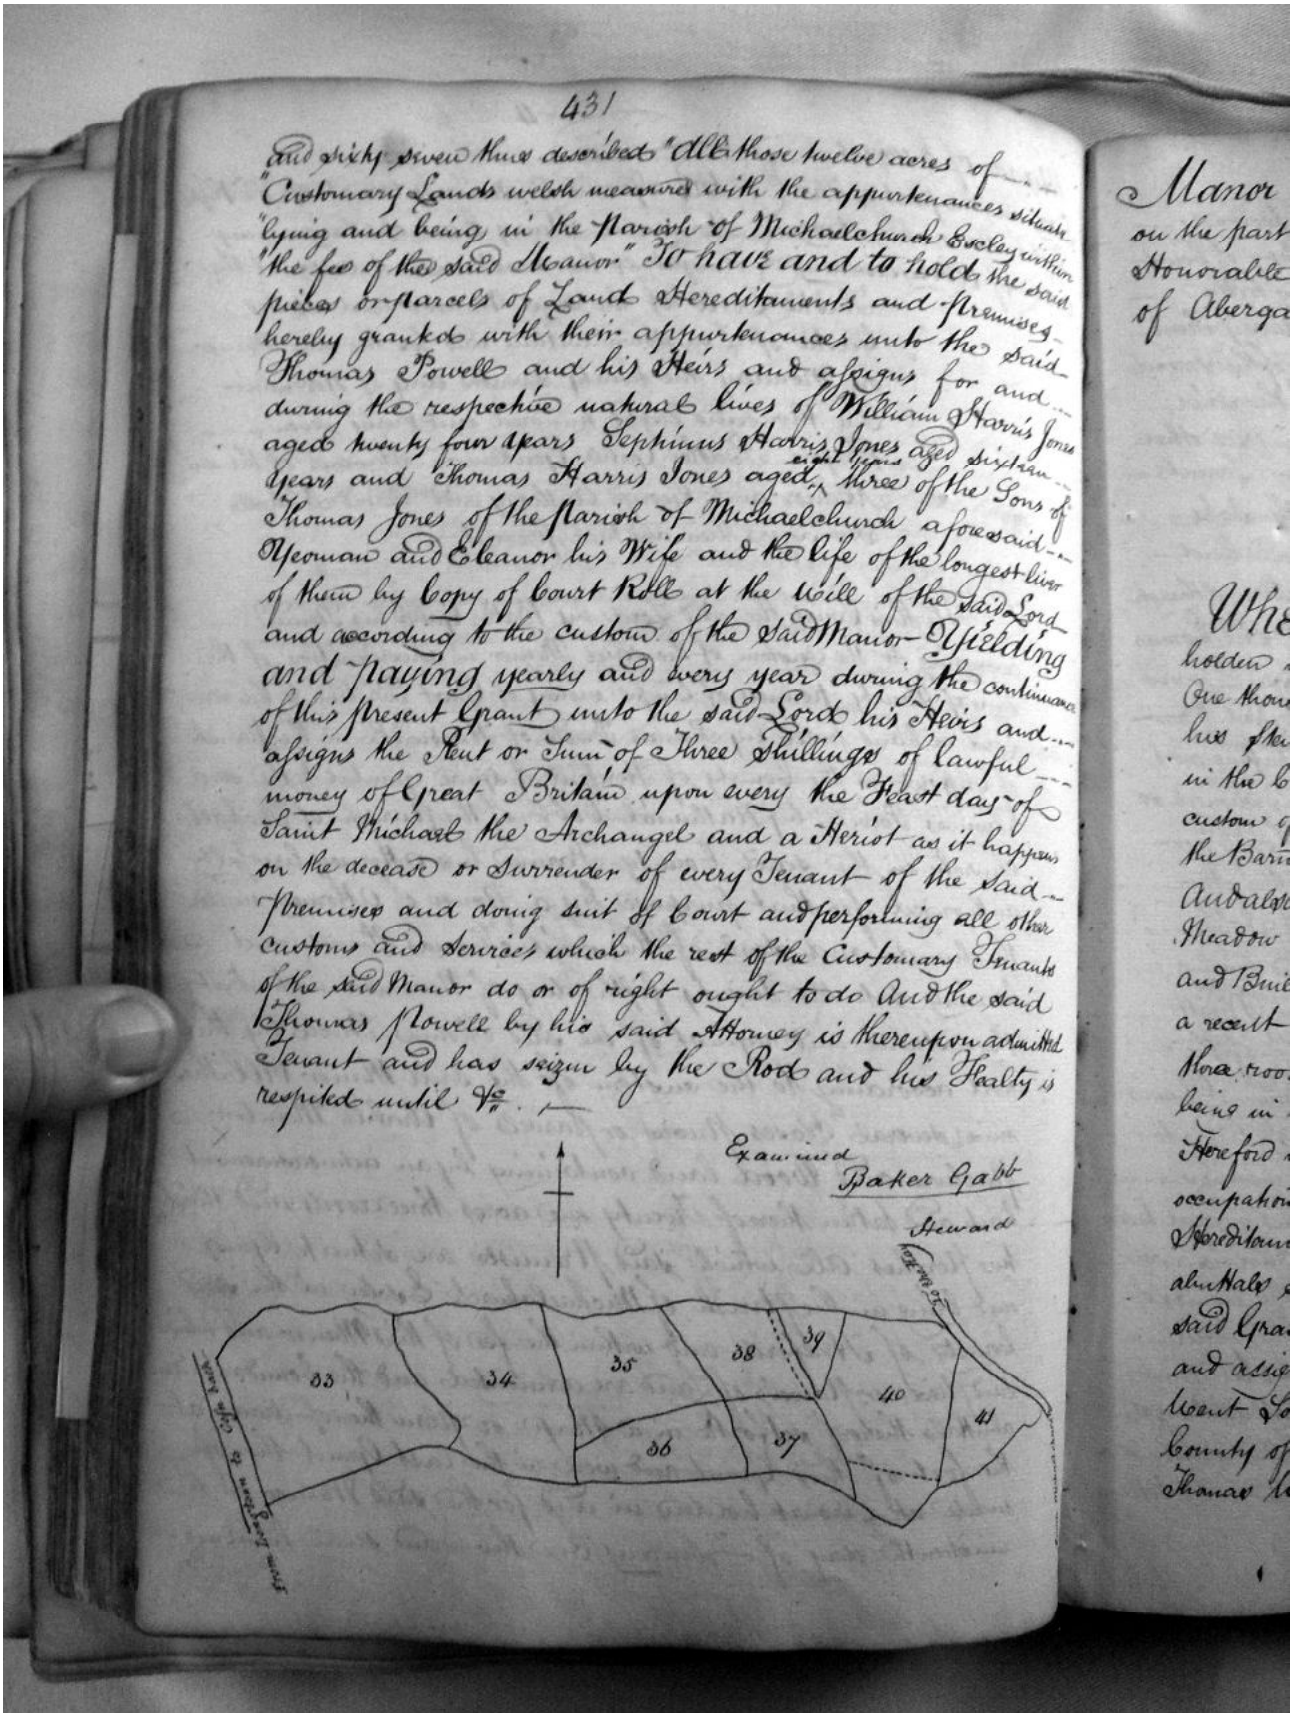 431
and sixty seven thus described "All those twelve acres of
"Customary Lands welsh measure with the appurtenances situate
"lying and being in the Parish of Michaelchurch Escley within
"the fee of the said Manor" To have and to hold the said
pieces or parcels of Land Hereditaments and Premises
hereby granted with their appurtenances unto the said
Thomas Powell and his Heirs and assigns for and
during the respective natural lives of William Harris Jones
aged twenty four years Sephinus Harris Jones aged sixteen
years and Thomas Harris Jones aged eight years three of the Sons of
Thomas Jones of the Parish of Michaelchurch aforesaid
Yeoman and Eleanor his Wife and the life of the longest liver
of them by Copy of Court Roll at the Will of the said Lord
and according to the custom of the said Manor Yielding
and paying yearly and every year during the continuance
of this present Grant unto the said Lord his Heirs and
assigns the Rent or Sum of Three Shillings of lawful
money of Great Britain upon every the Feast day of
Saint Michael the Archangel and a Heriot as it happens
on the decease or Surrender of every Tenant of the said
Premises and doing suit of Court and performing all other
customs and Services which the rest of the Customary Tenants
of the said Manor do or of right ought to do And the said
Thomas Powell by his said Attorney is thereupon admitted
Tenant and has seizin by the Rod and his Fealty is
respited until &c.
Examined
Baker Gabb
Steward
To the Hay
33
34
35
38
39
40
41
36
37
From to Cefn
Manor
on the part
Honorable
of Aberga
Whe
holden
One thous
his
in the C
custom of
the Barn
And also
Meadow
and Buil
a recent
three roo
being in
Hereford
occupation
Hereditam
abuttals
said Gra
and assig
Went
County of
Thomas